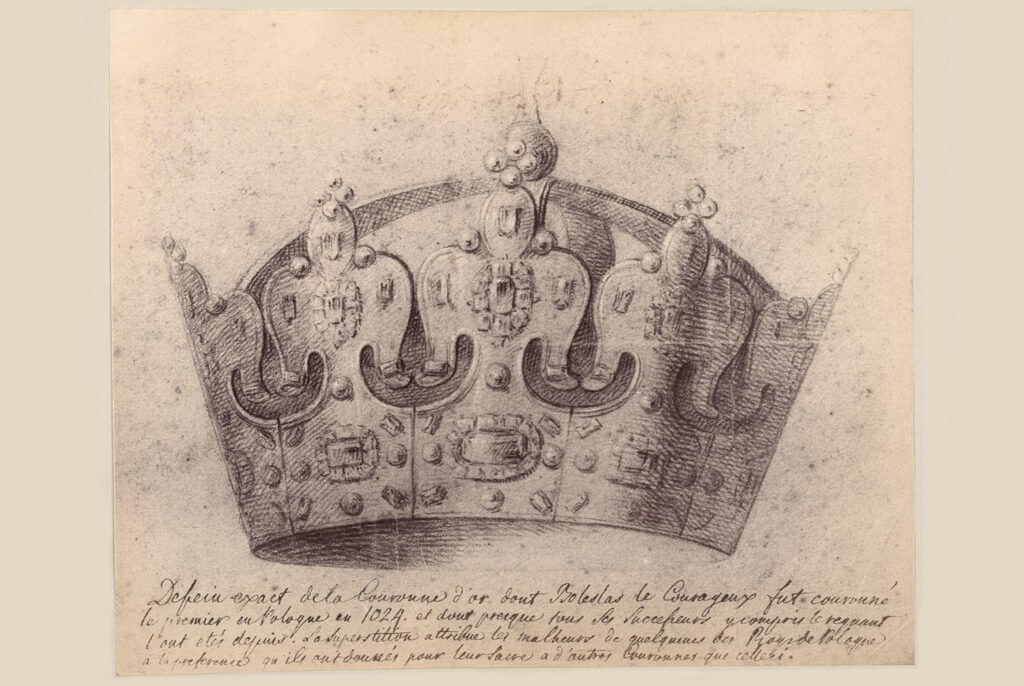 Dessein exact de la Couronne d'or, dont Boleslas le Courageux fut couronné
le premier en Pologne en 1024. et dont presque tous ses Successeurs y compris le regnant
l'ont etés depuis. La superstition attribue les malheurs de quelqu'unes des Roys de Pologne
a la preference qu'ils ont donnés pour leur Sacre a d'autres Couronnes que celleci.